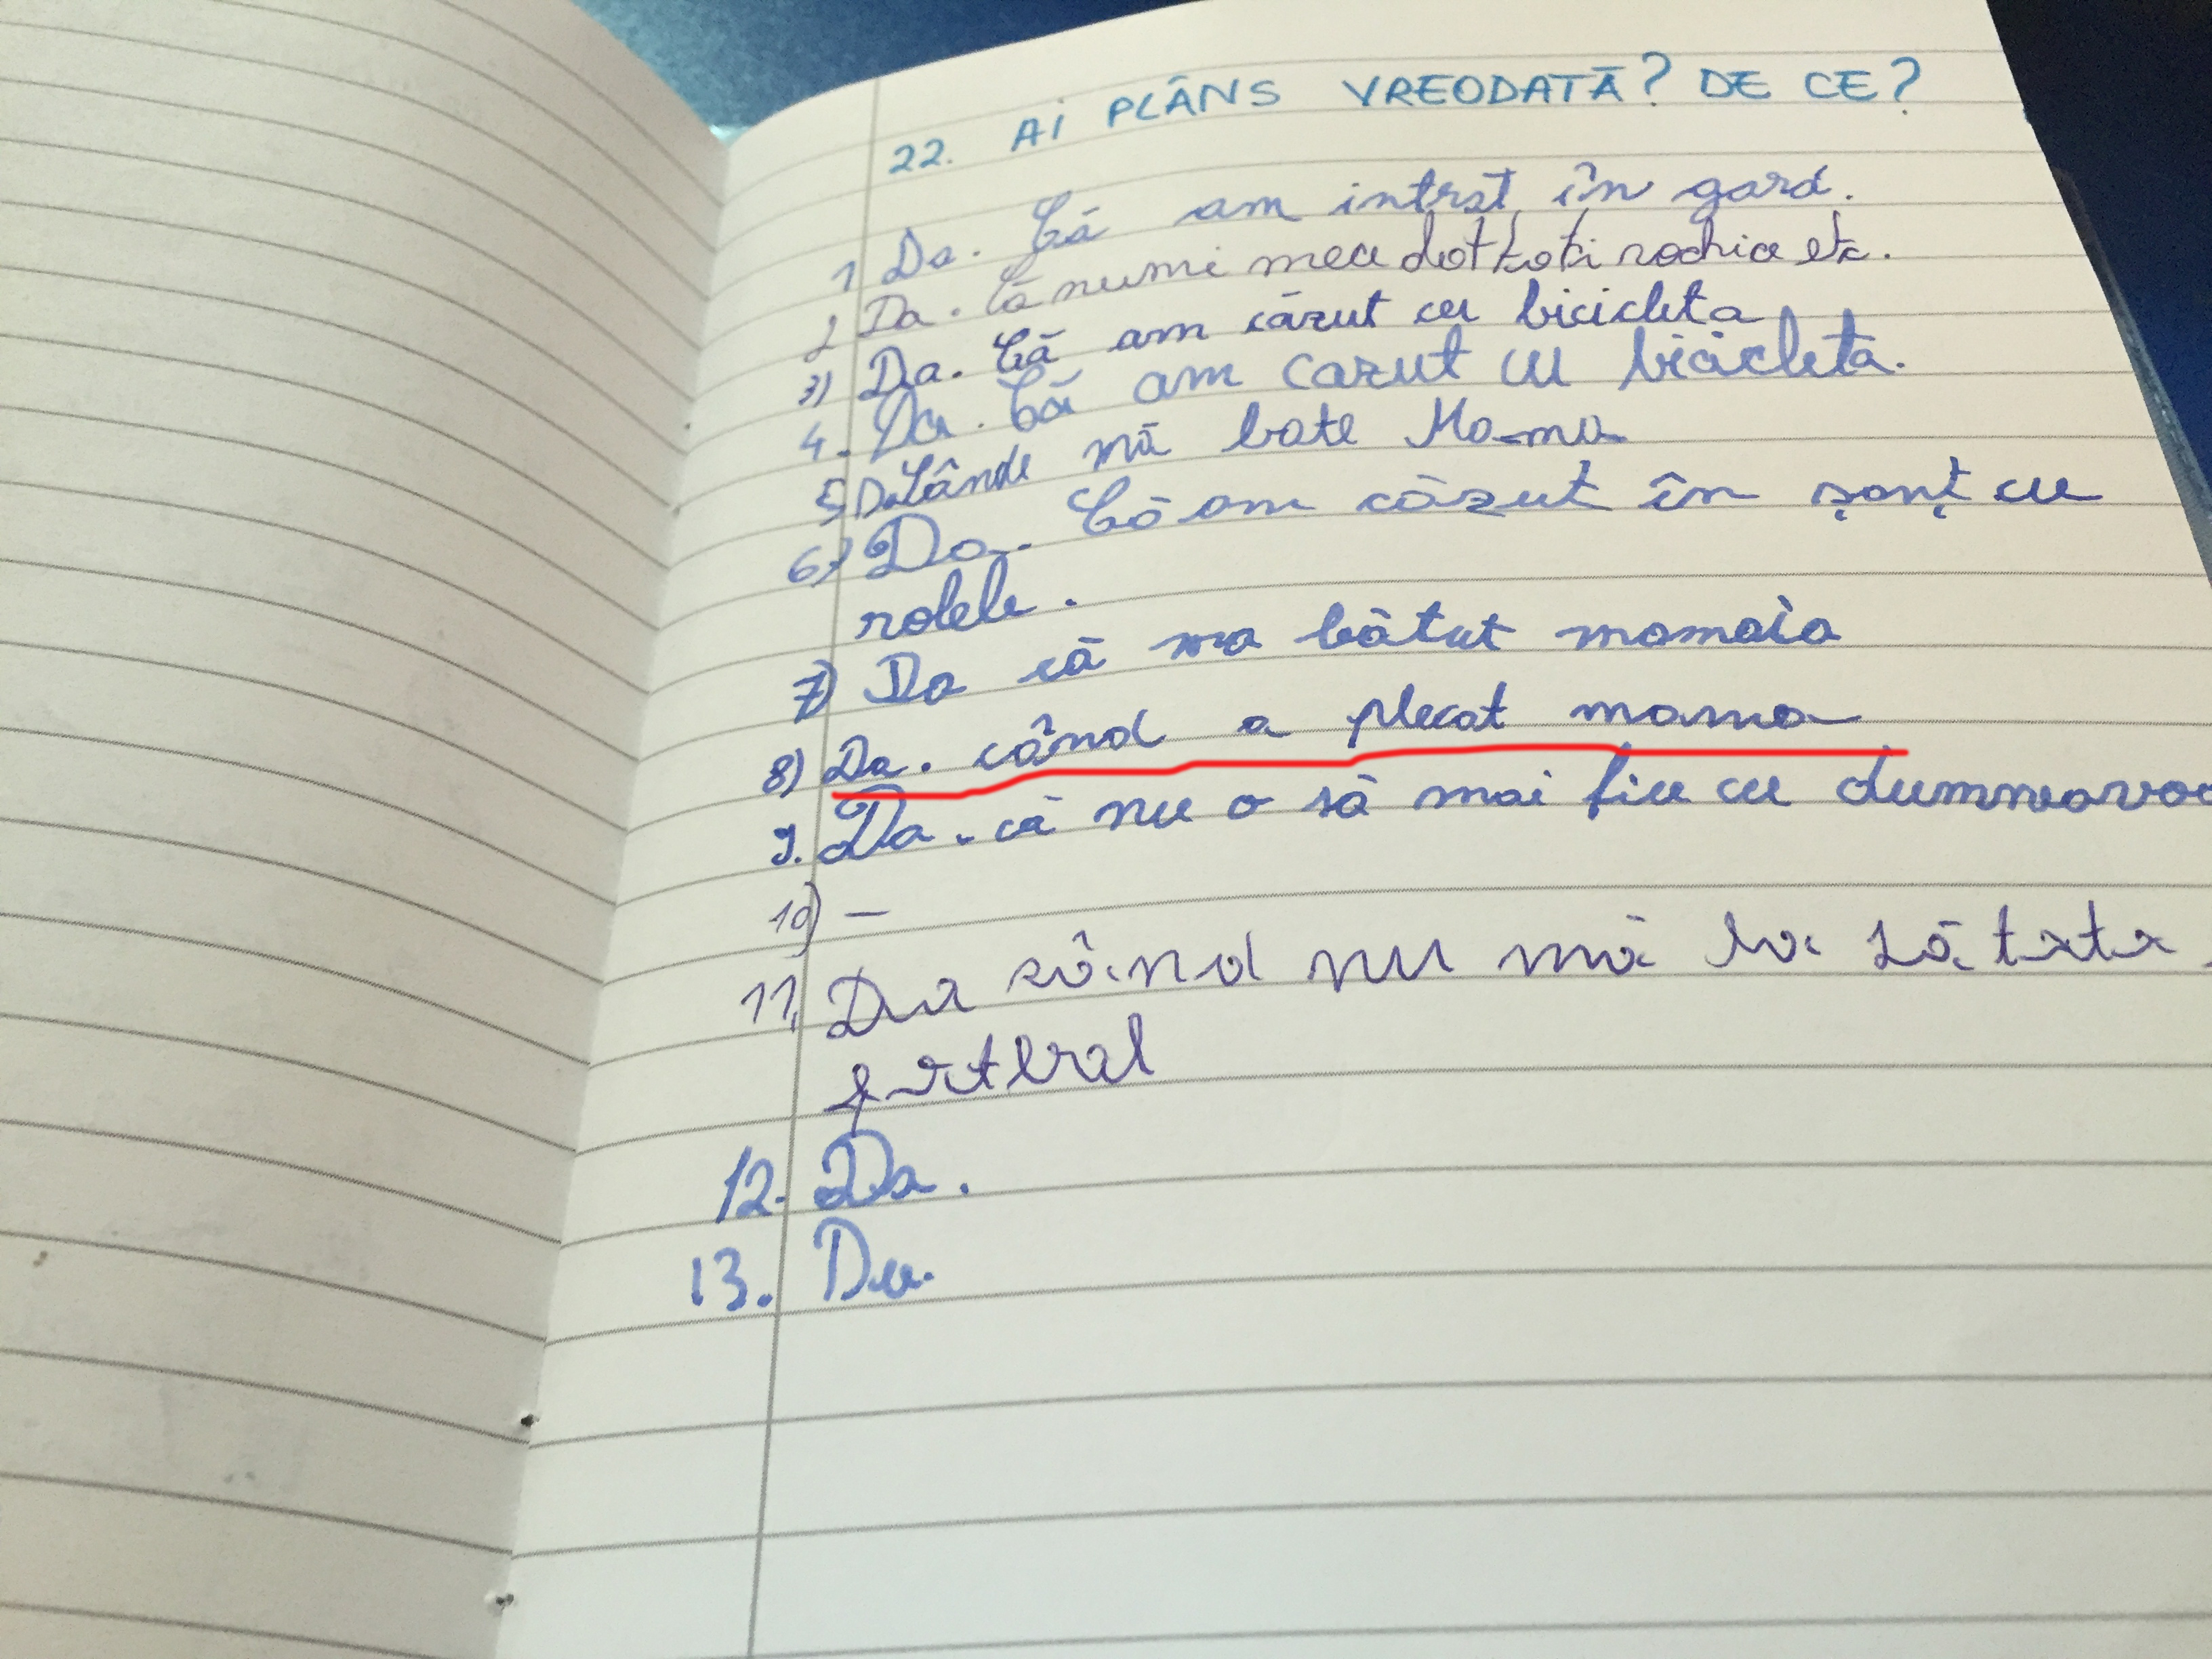 22. AI PLÂNS VREODATĂ? DE CE?
1 Da. Că am intrat în gard.
2 Da. Că numi mea dat toti rochia etc.
3) Da. Că am căzut cu bicicleta
4. Da. Că am cazut cu bicicleta.
5 Da Cânde mă bate Mama
6) Da. Că am căzut în șonț cu
rolele.
7) Da că ma bătut mamaia
8) Da. când a plecat mama
9. Da. că nu o să mai fiu cu
10) –
11, Da când nu mă la să tata
12. Da.
13. Da.